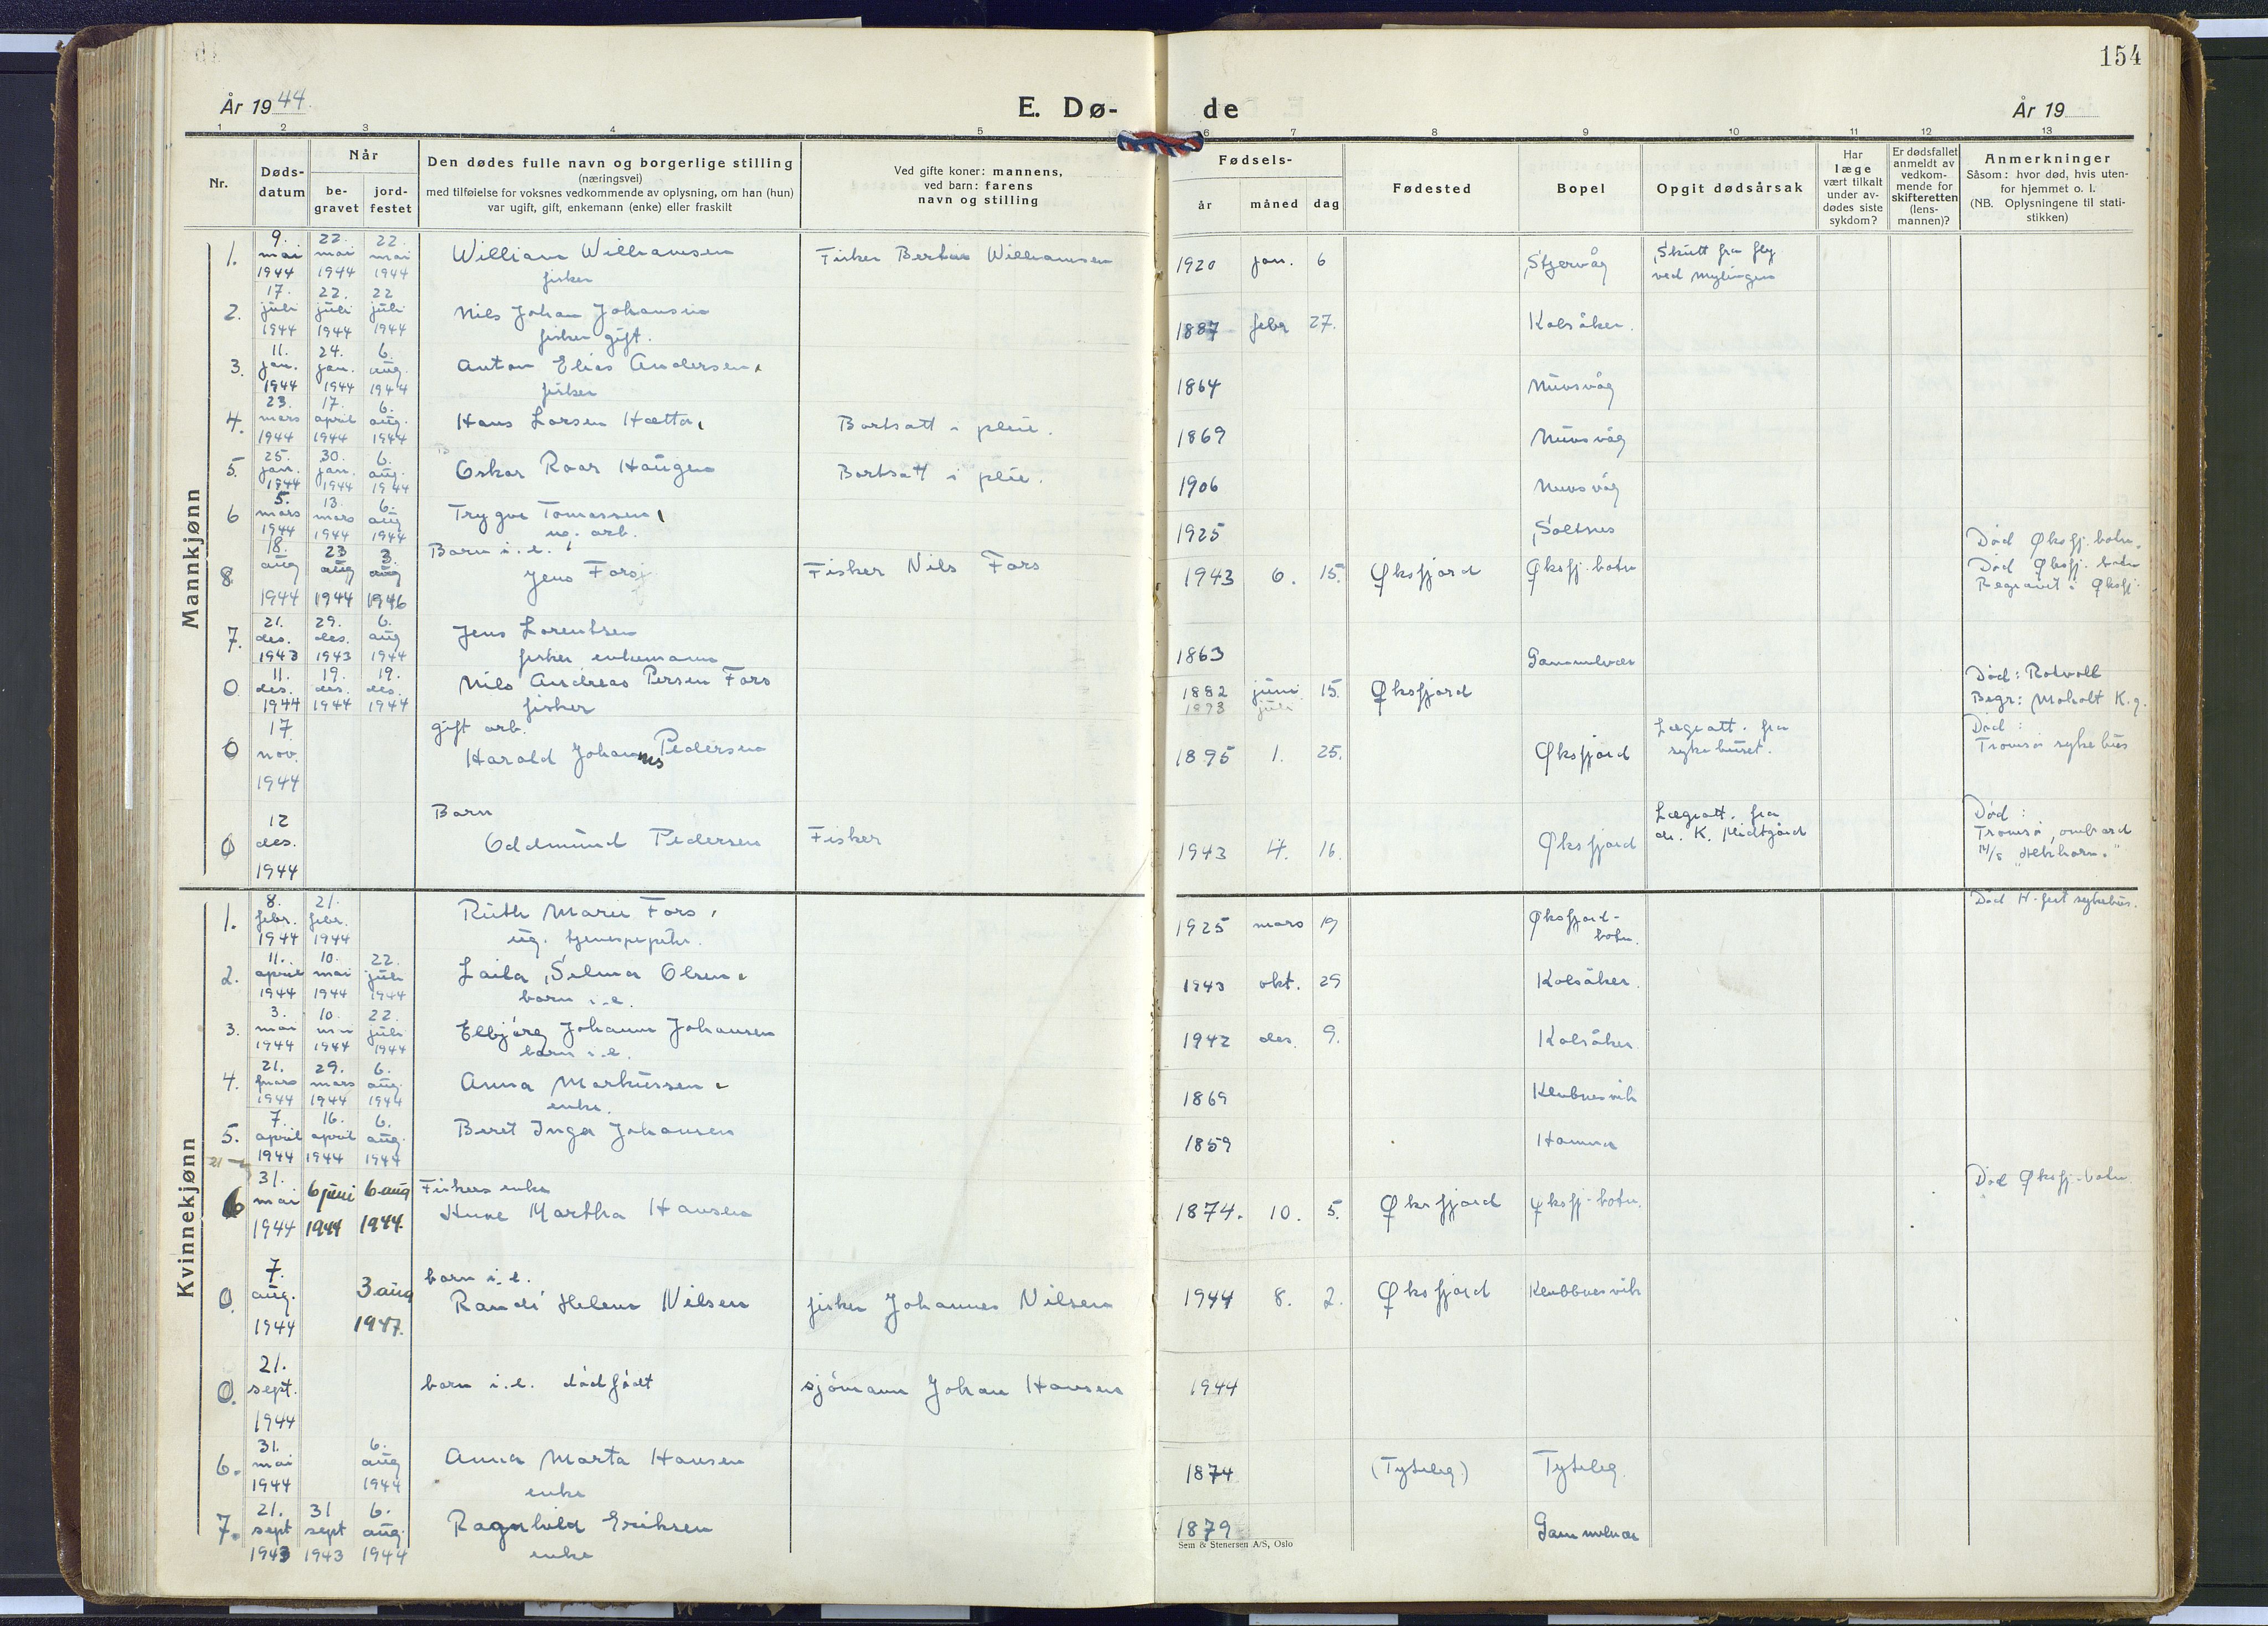 154
År 1944.
E. Dø-
de
År 19
1 2 3 4 5 6 7 8 9 10 11 12 13
Nr.
Døds-
datum
Når
be-
gravet
jord-
festet
Den dødes fulle navn og borgerlige stilling
(næringsvei)
med tilføielse for voksnes vedkommende av oplysning, om han (hun)
var ugift, gift, enkemann (enke) eller fraskilt
Ved gifte koner: mannens,
ved barn: farens
navn og stilling
Fødsels-
år måned dag
Fødested
Bopel
Opgit dødsårsak
Har
læge
vært tilkalt
under av-
dødes siste
sykdom?
Er dødsfallet
anmeldt av
vedkom-
mende for
skifteretten
(lens-
mannen)?
Anmerkninger
Såsom: hvor død, hvis uten-
for hjemmet o. l.
(NB. Oplysningene til stati-
stikken)
Mannkjønn
1. 9. mai 1944 22. mai 1944 22. mai 1944 William Williamsen Fisker Williamsen 1920 jan. 6 Stjervåg Skutt fra fly
fisker ved Mylingen
2. 17. juli 1944 22. juli 1944 22 juli 1944 Nils Johan Johansen 1887 febr 27. Kolsåker.
fisker gift.
3. 11. jan. 1944 24. jan. 1944 6. aug. 1944 Anton Elias Andersen, 1864 Nuvsvåg
fisker
4. 23. mars 1944 17. april 1944 6. aug. 1944 Hans Larsen Hætta, Bortsatt i pleie. 1869 Nuvsvåg
5. 25. jan. 1944 30. jan. 1944 6. aug. 1944 Oskar Roar Haugen Bortsatt i pleie. 1906 Nuvsvåg
6 5. mars 1944 13. mars 1944 6. aug 1944 Trygve Tomassen, 1925 Saltnes Død Øksfj. botn.
arb.
8 18. aug 1944 23 aug 1944 3. aug 1946 Barn i.e.
Jens Fors Fisker Nils Fors 1943 6. 15. Øksfjord Øksfj. botn Død Øksfj. botn
Begravet i Øksfj.
7. 21. des. 1943 29. des. 1943 6. aug 1944 Jens Lorentsen 1863 Gammelvær
fisker, enkemann
0 11. des. 1944 19. des. 1944 19. des. 1944 Nils Andreas Persen Fors 1882 juni 15. Øksfjord Død: Rotvoll
fisker 1893 juli Begr: Moholt K.g.
0 17 nov. 1944 gift arb.
Harald Johannes Pedersen 1895 1. 25. Øksfjord Lægeatt. fra
sykehuset. Død:
Tromsø sykehus
0 12 des. 1944 Barn
Oddmund Pedersen Fisker 1943 4. 16. Øksfjord Lægeatt. fra
dr. K. Død:
Tromsø, ombord
M/S
Kvinnekjønn
1. 8. febr. 1944 21. febr. 1944 Ruth Marie Fors, 1925 mars 19 Øksfjord-
botn. Død H.fest sykehus.
ug. tjenestepike.
2. 11. april 1944 10. mai 1944 22. juli 1944 Laila Selma Olsen, 1943 okt. 29 Kolsåker.
barn i.e.
3. 3. mai 1944 10. mai 1944 22. juli 1944 Ellbjørg Johanne Johansen 1942 des. 9. Kolsåker
barn i.e.
4. 21. mars 1944 29. mars 1944 6. aug. 1944 Anna Markussen, 1869 Klubnesvik
enke.
5. 7. april 1944 16. april 1944 6. aug. 1944 Beret Inga Johansen 1859 Hamna
21
6 31. mai 1944 6 juni 1944 6 aug 1944. Fiskers enke
Anne Martha Hansen 1874. 10. 5. Øksfjord Øksfj-botn. Død Øksfj-botn
0. 7. aug. 1944 3 aug 1947. barn i.e.
Randi Helene Nilsen fisker Johannes Nilsen 1944 8. 2. Øksfjord Klubbnesvik
0. 21. sept. 1944 barn i.e. dødfødt sjømann Johan Hansen 1944
6. 31. mai 1944 6. aug 1944 Anna Marta Hansen 1874 (Tyteleg) Tyteleg.
enke
7. 21. sept 1943 31 sept 1943 6. aug. 1944 Ragnhild Eriksen 1879 Gammelvær
enke
Sem & Stenersen A/S, Oslo